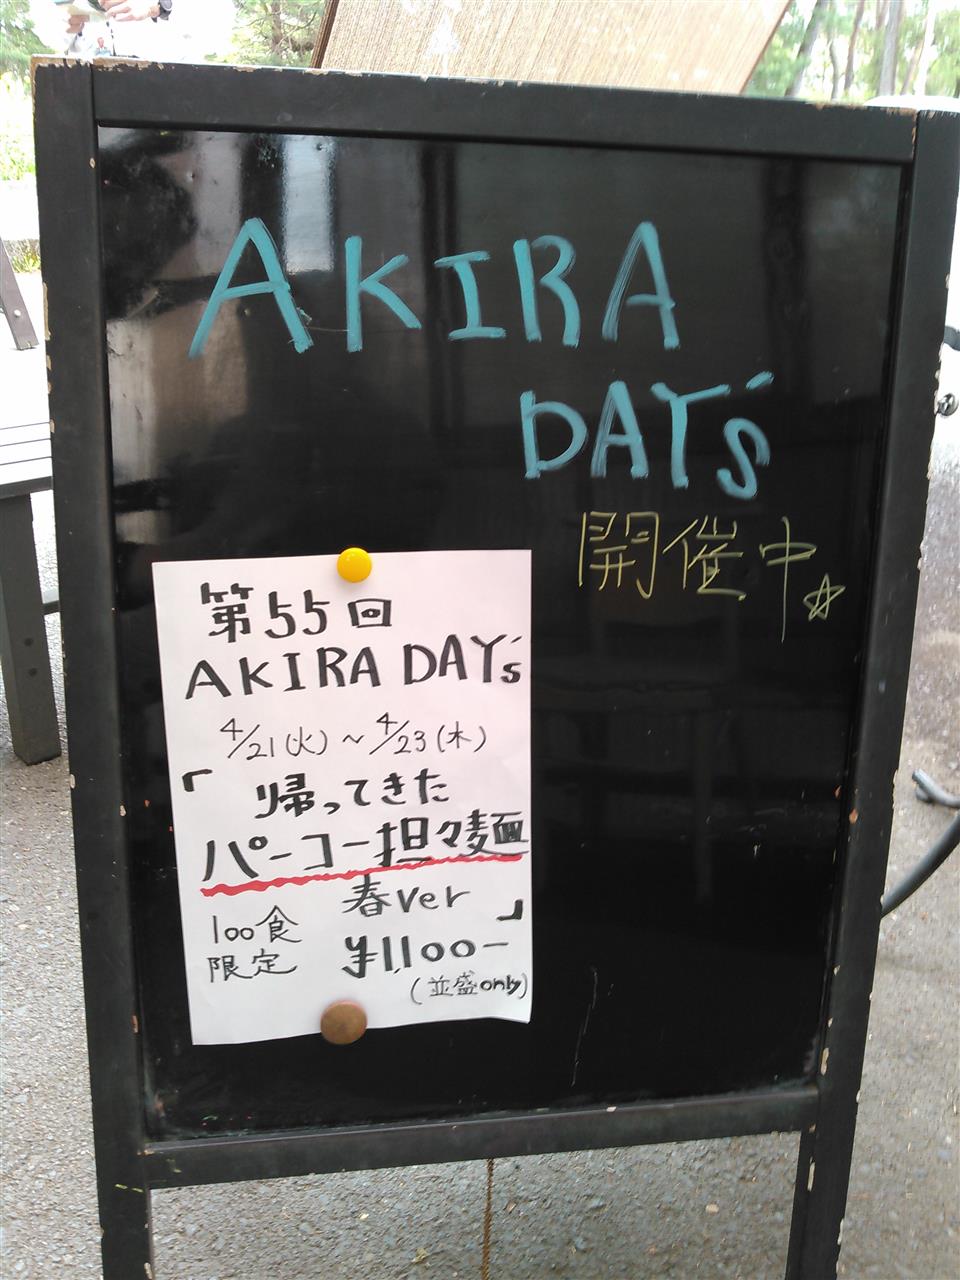 AKIRA
DAY's
開催中☆
第55回
AKIRA DAY's
4/21(火)~4/23(木)
「帰ってきた
パーコー担々麺
春ver」
100食
限定
¥1,100-
(並盛only)